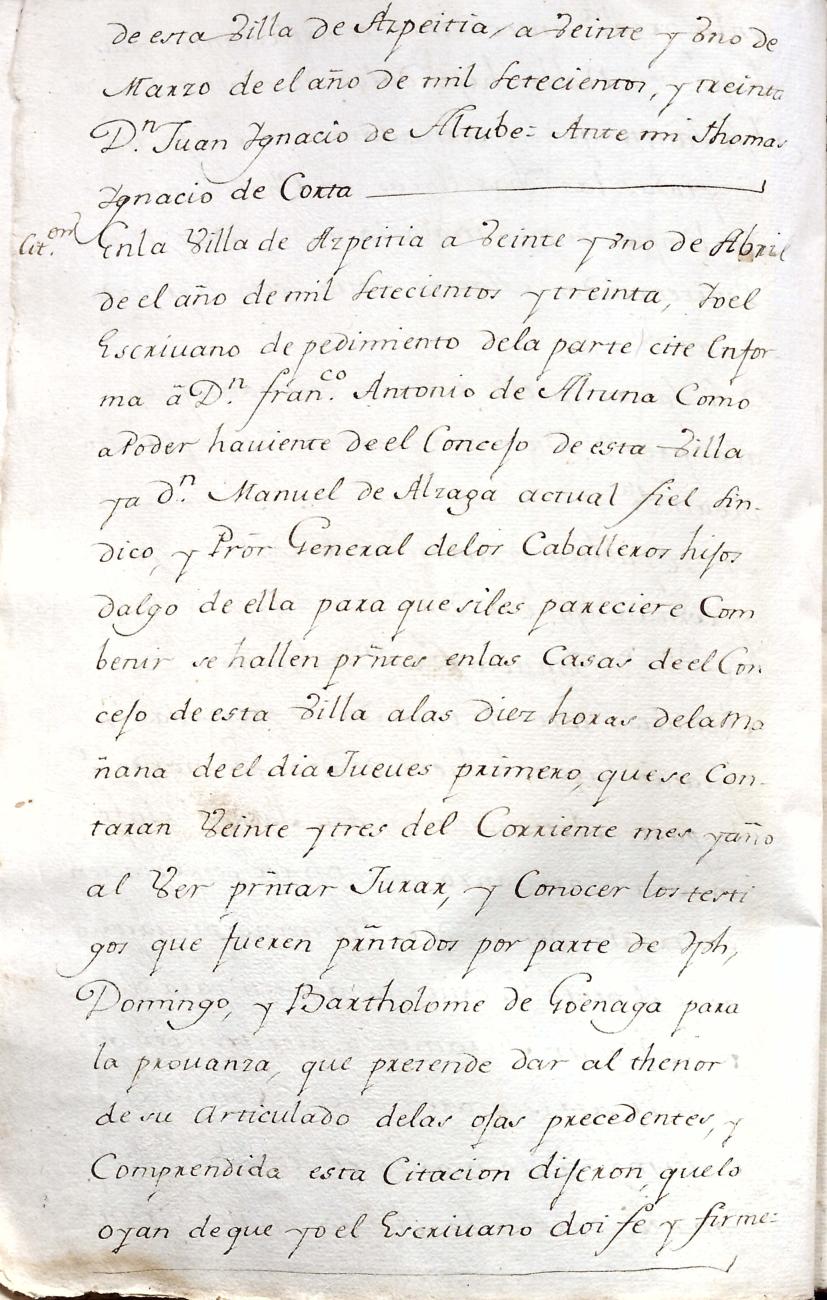 de esta Villa de Azpeitia, a Veinte y Vno de
Marzo de el año de mil setecientos, y treinta
D.n Juan Ygnacio de Altube= Ante mi thomas
Ygnacio de Corta
Cit.on En la Villa de Azpeitia a Veinte y Vno de Abril
de el año de mil setecientos y treinta, Yo el
Escriuano de pedimiento dela parte cite Enfor
ma â D.n fran.co Antonio de Altuna Como
aPoder hauiente de el Concejo de esta Villa
ya d.n Manuel de Alzaga actual fiel sin-
dico, y Prõr General delos Caballeros hijos
dalgo de ella para que siles pareciere Com
benir se hallen prñtes enlas Casas de el Con
cejo de esta Villa alas diez horas dela Ma
ñana de el dia Jueves primero, que se Con-
taran Veinte y tres del Corriente mes y año
al Ver prñtar Jurar, y Conocer los testi
gos que fueren prñtados por parte de Jph,
Domingo, y Bartholome de Goenaga para
la prouanza, que pretende dar al thenor
de su articulado delas ojas precedentes, y
Comprendida esta Citacion dijeron, quelo
oyan de que yo el Escriuano doi fe y firme=